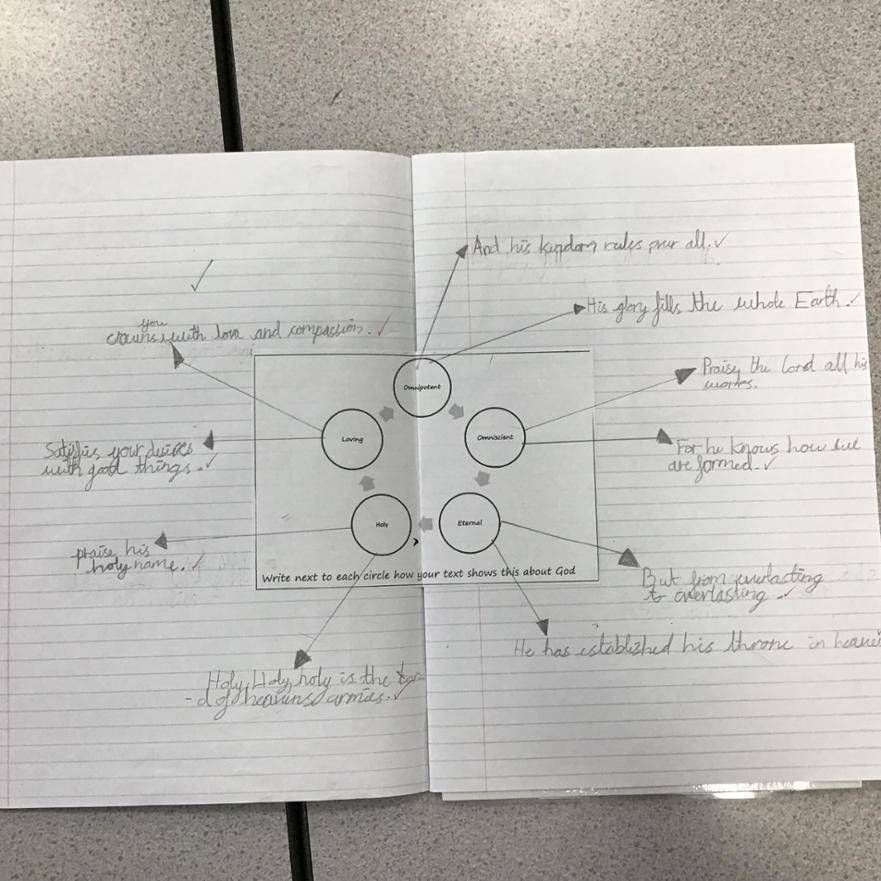 And his kingdom rules over all.
His glory fills the whole Earth.
you
crowns with love and compassion.
Praise the Lord all his
works.
Omnipotent
Loving
Omniscient
Satisfies your desires
with good things.
For he knows how we
are formed.
Holy
Eternal
praise his
holy name.
Write next to each circle how your text shows this about God
But from everlasting
to everlasting
He has established his throne in heaven
Holy, Holy, holy is the Lor
-d of heavens armies.